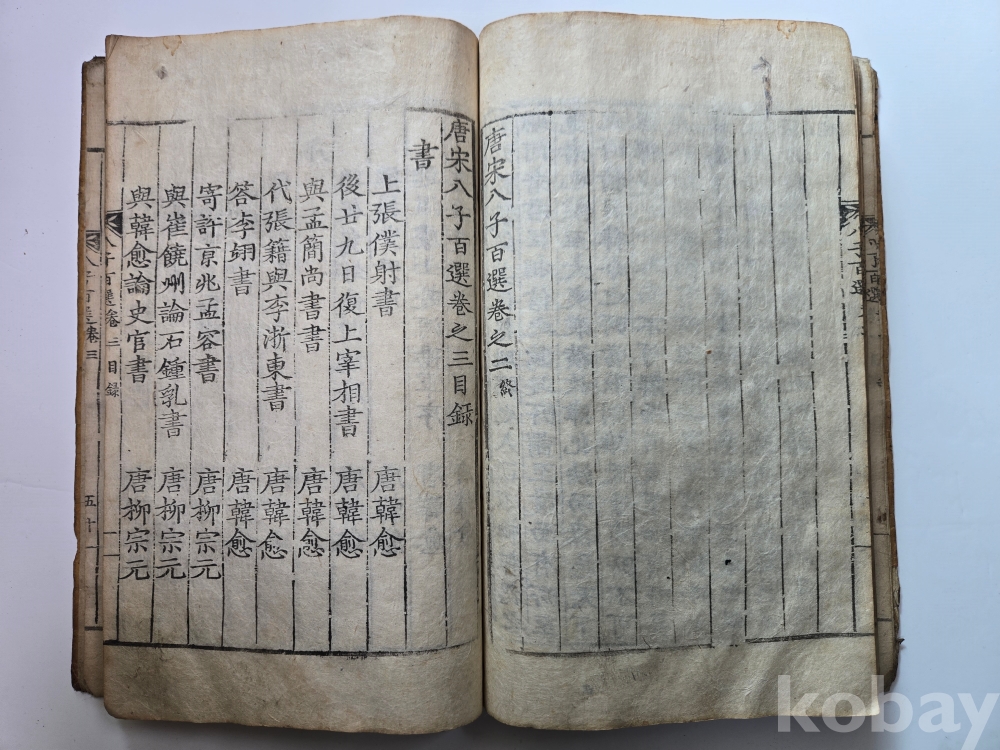 唐宋八子百選卷之二 終
唐宋八子百選卷之三目錄
書
上張僕射書 唐韓愈
後廿九日復上宰相書 唐韓愈
與孟簡尚書書 唐韓愈
代張籍與李浙東書 唐韓愈
答李翊書 唐韓愈
寄許京兆孟容書 唐柳宗元
與崔饒州論石鍾乳書 唐柳宗元
與韓愈論史官書 唐柳宗元
八子百選卷三目錄
五十
kobay